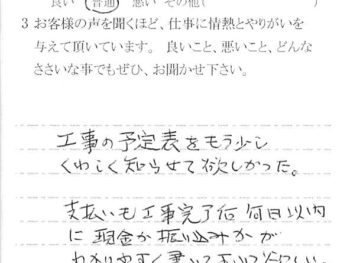 良い 普通 悪い その他( )
3 お客様の声を聞くほど、仕事に情熱とやりがいを
与えて頂いています。 良いこと、悪いこと、どんな
ささいな事でもぜひ、お聞かせ下さい。
工事の予定表をもう少し
くわしく知らせて欲しかった。
支払いも工事完了后 何日以内
に 現金か振り込みかが
わかりやすく書いて